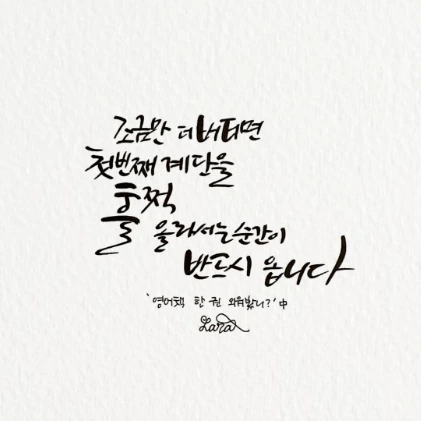 조금만 더 버티면
첫번째 계단을
훌쩍
올라서는 순간이
반드시 옵니다
'영어책 한 권 외워봤니?' 中
Lara